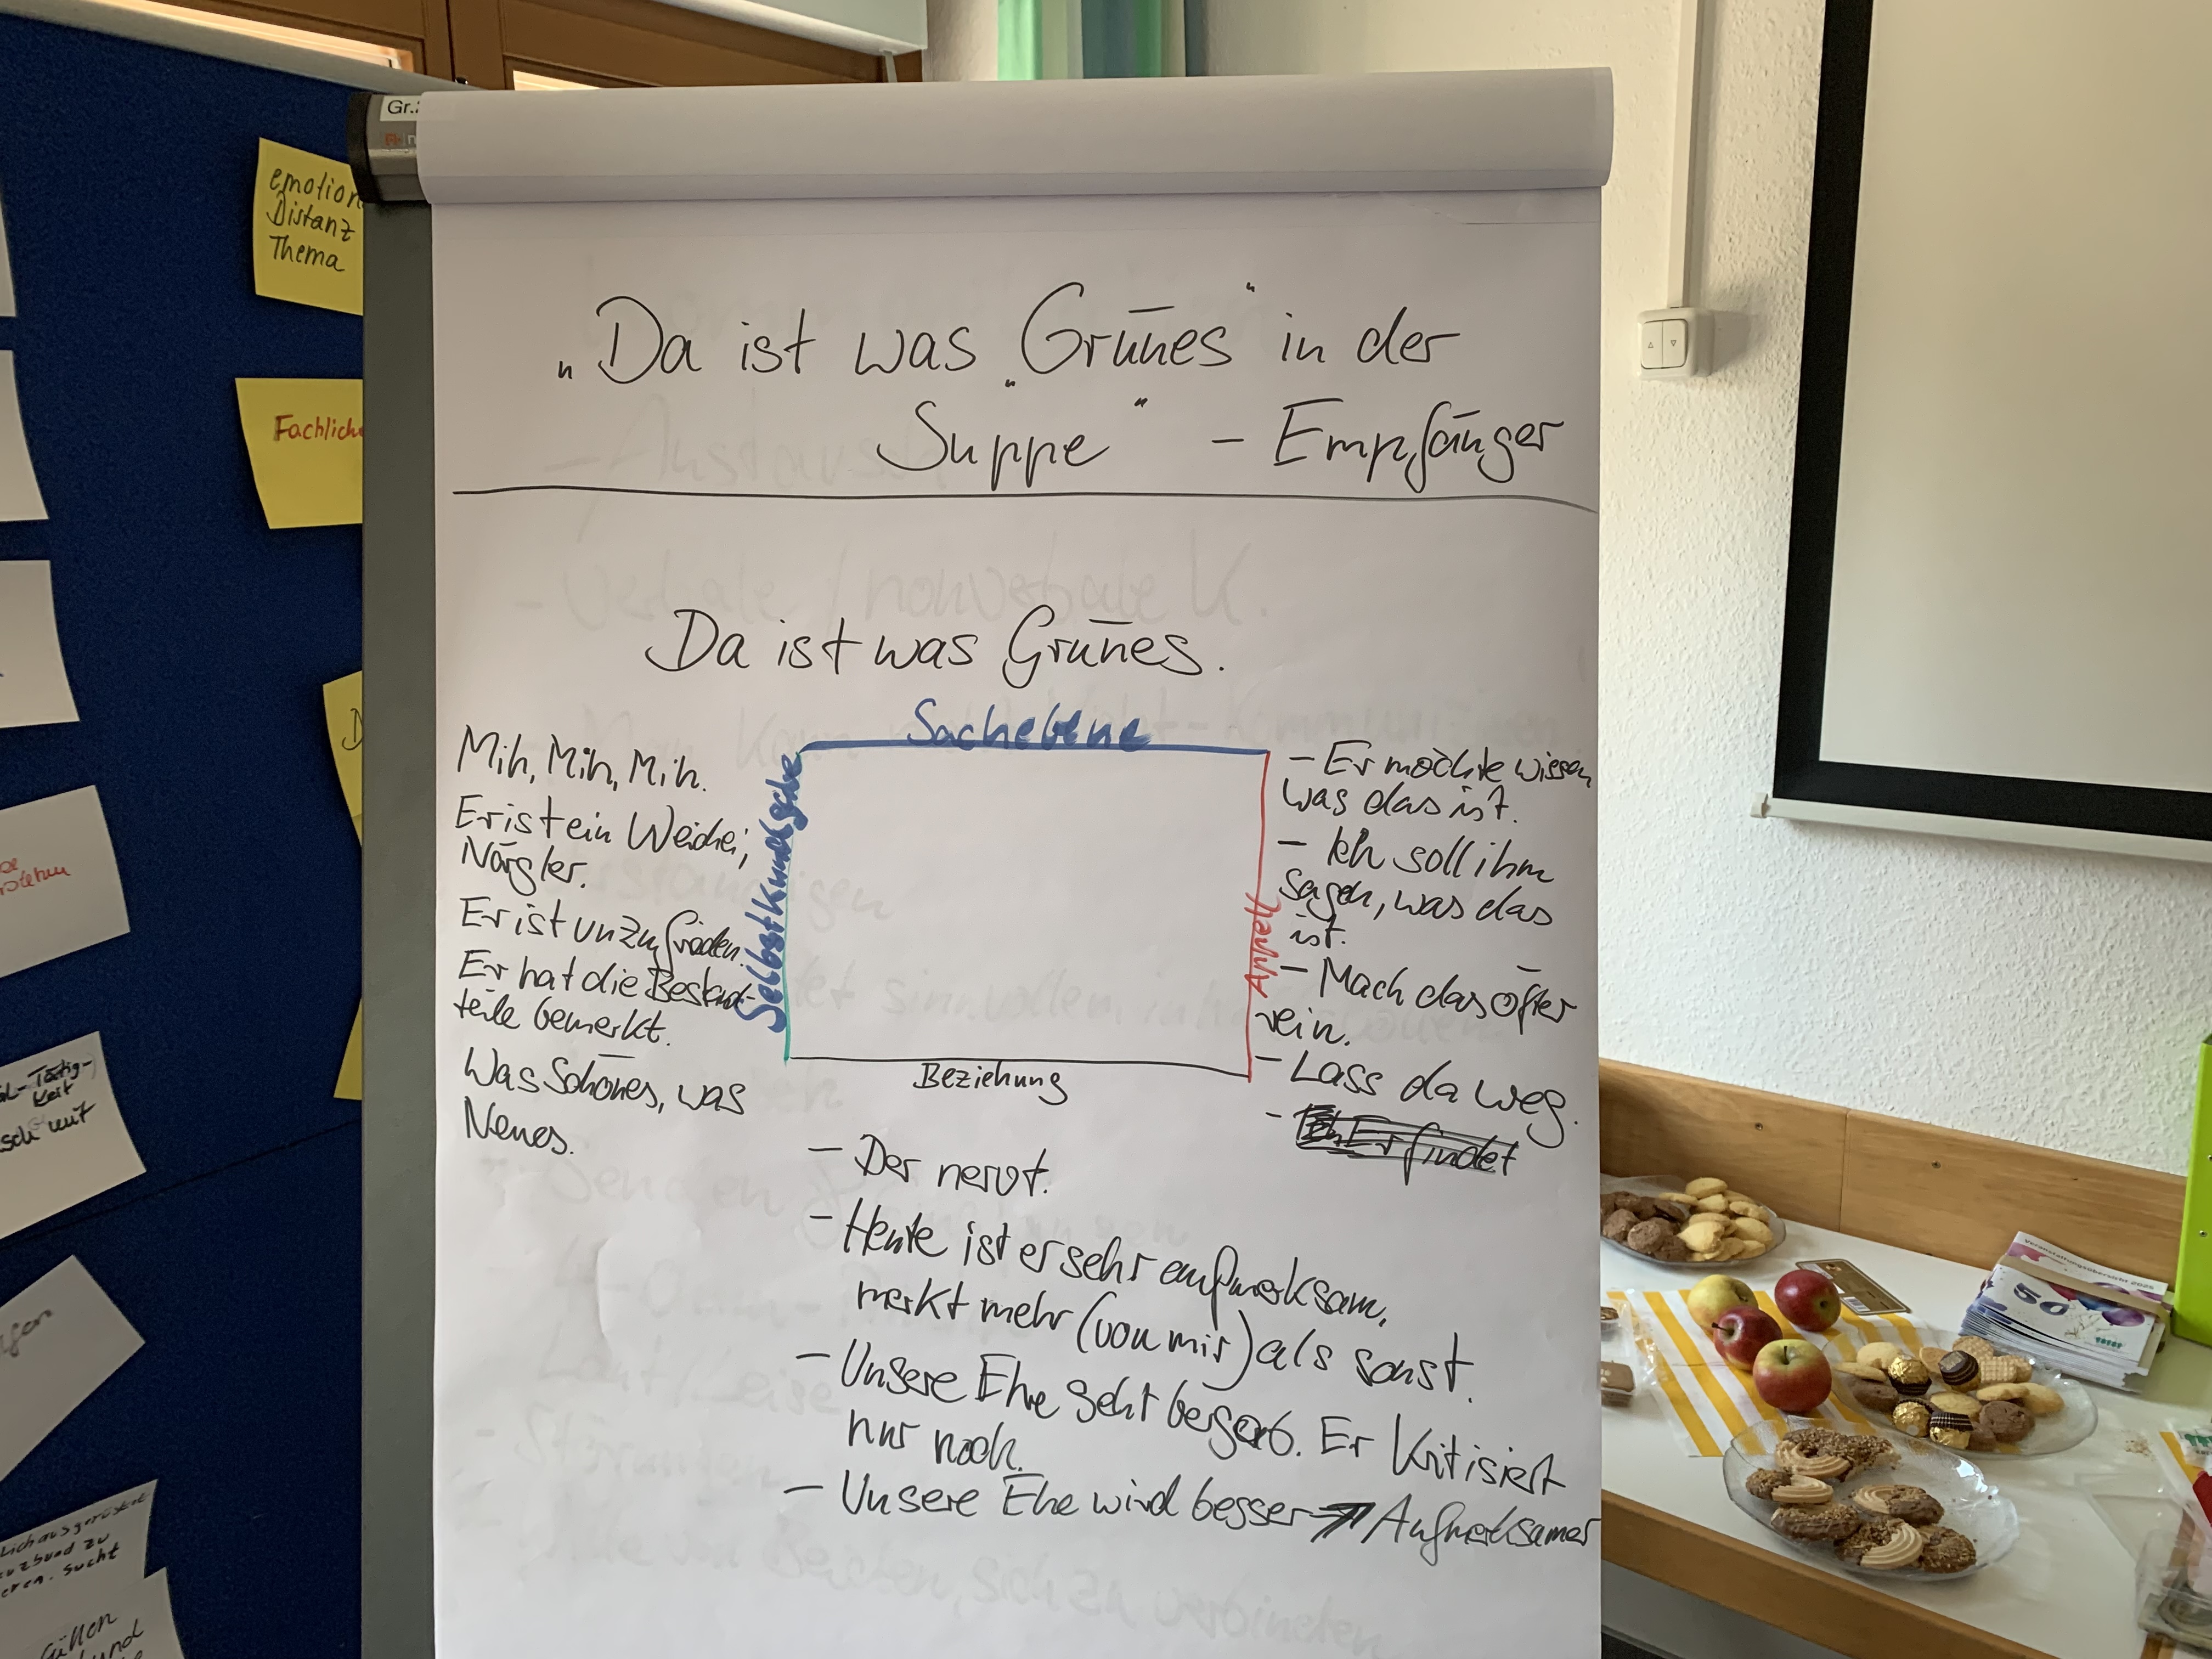 Gr.
emotion
Distanz
Thema
Fachliche
„Da ist was „Grünes" in der
Suppe" - Empfänger
Da ist was Grünes.
Sachebene
Selbstkundgabe
Appell
Beziehung
Mih, Mih, Mih.
Er ist ein Weichei,
Nörgler.
Er ist unzufrieden.
Er hat die Bestand-
teile bemerkt.
Was Schönes, was
Neues.
- Er möchte wissen
was das ist.
- Ich soll ihm
sagen, was das
ist.
- Mach das öfter
rein.
- Lass da weg.
- Er findet
- Der nervt.
- Heute ist er sehr aufmerksam,
merkt mehr (von mir) als sonst.
- Unsere Ehe geht bergab. Er kritisiert
nur noch.
- Unsere Ehe wird besser → Aufmerksamer
- Verbale / nonverbale K.
Veranstaltungsübersicht 2025
50